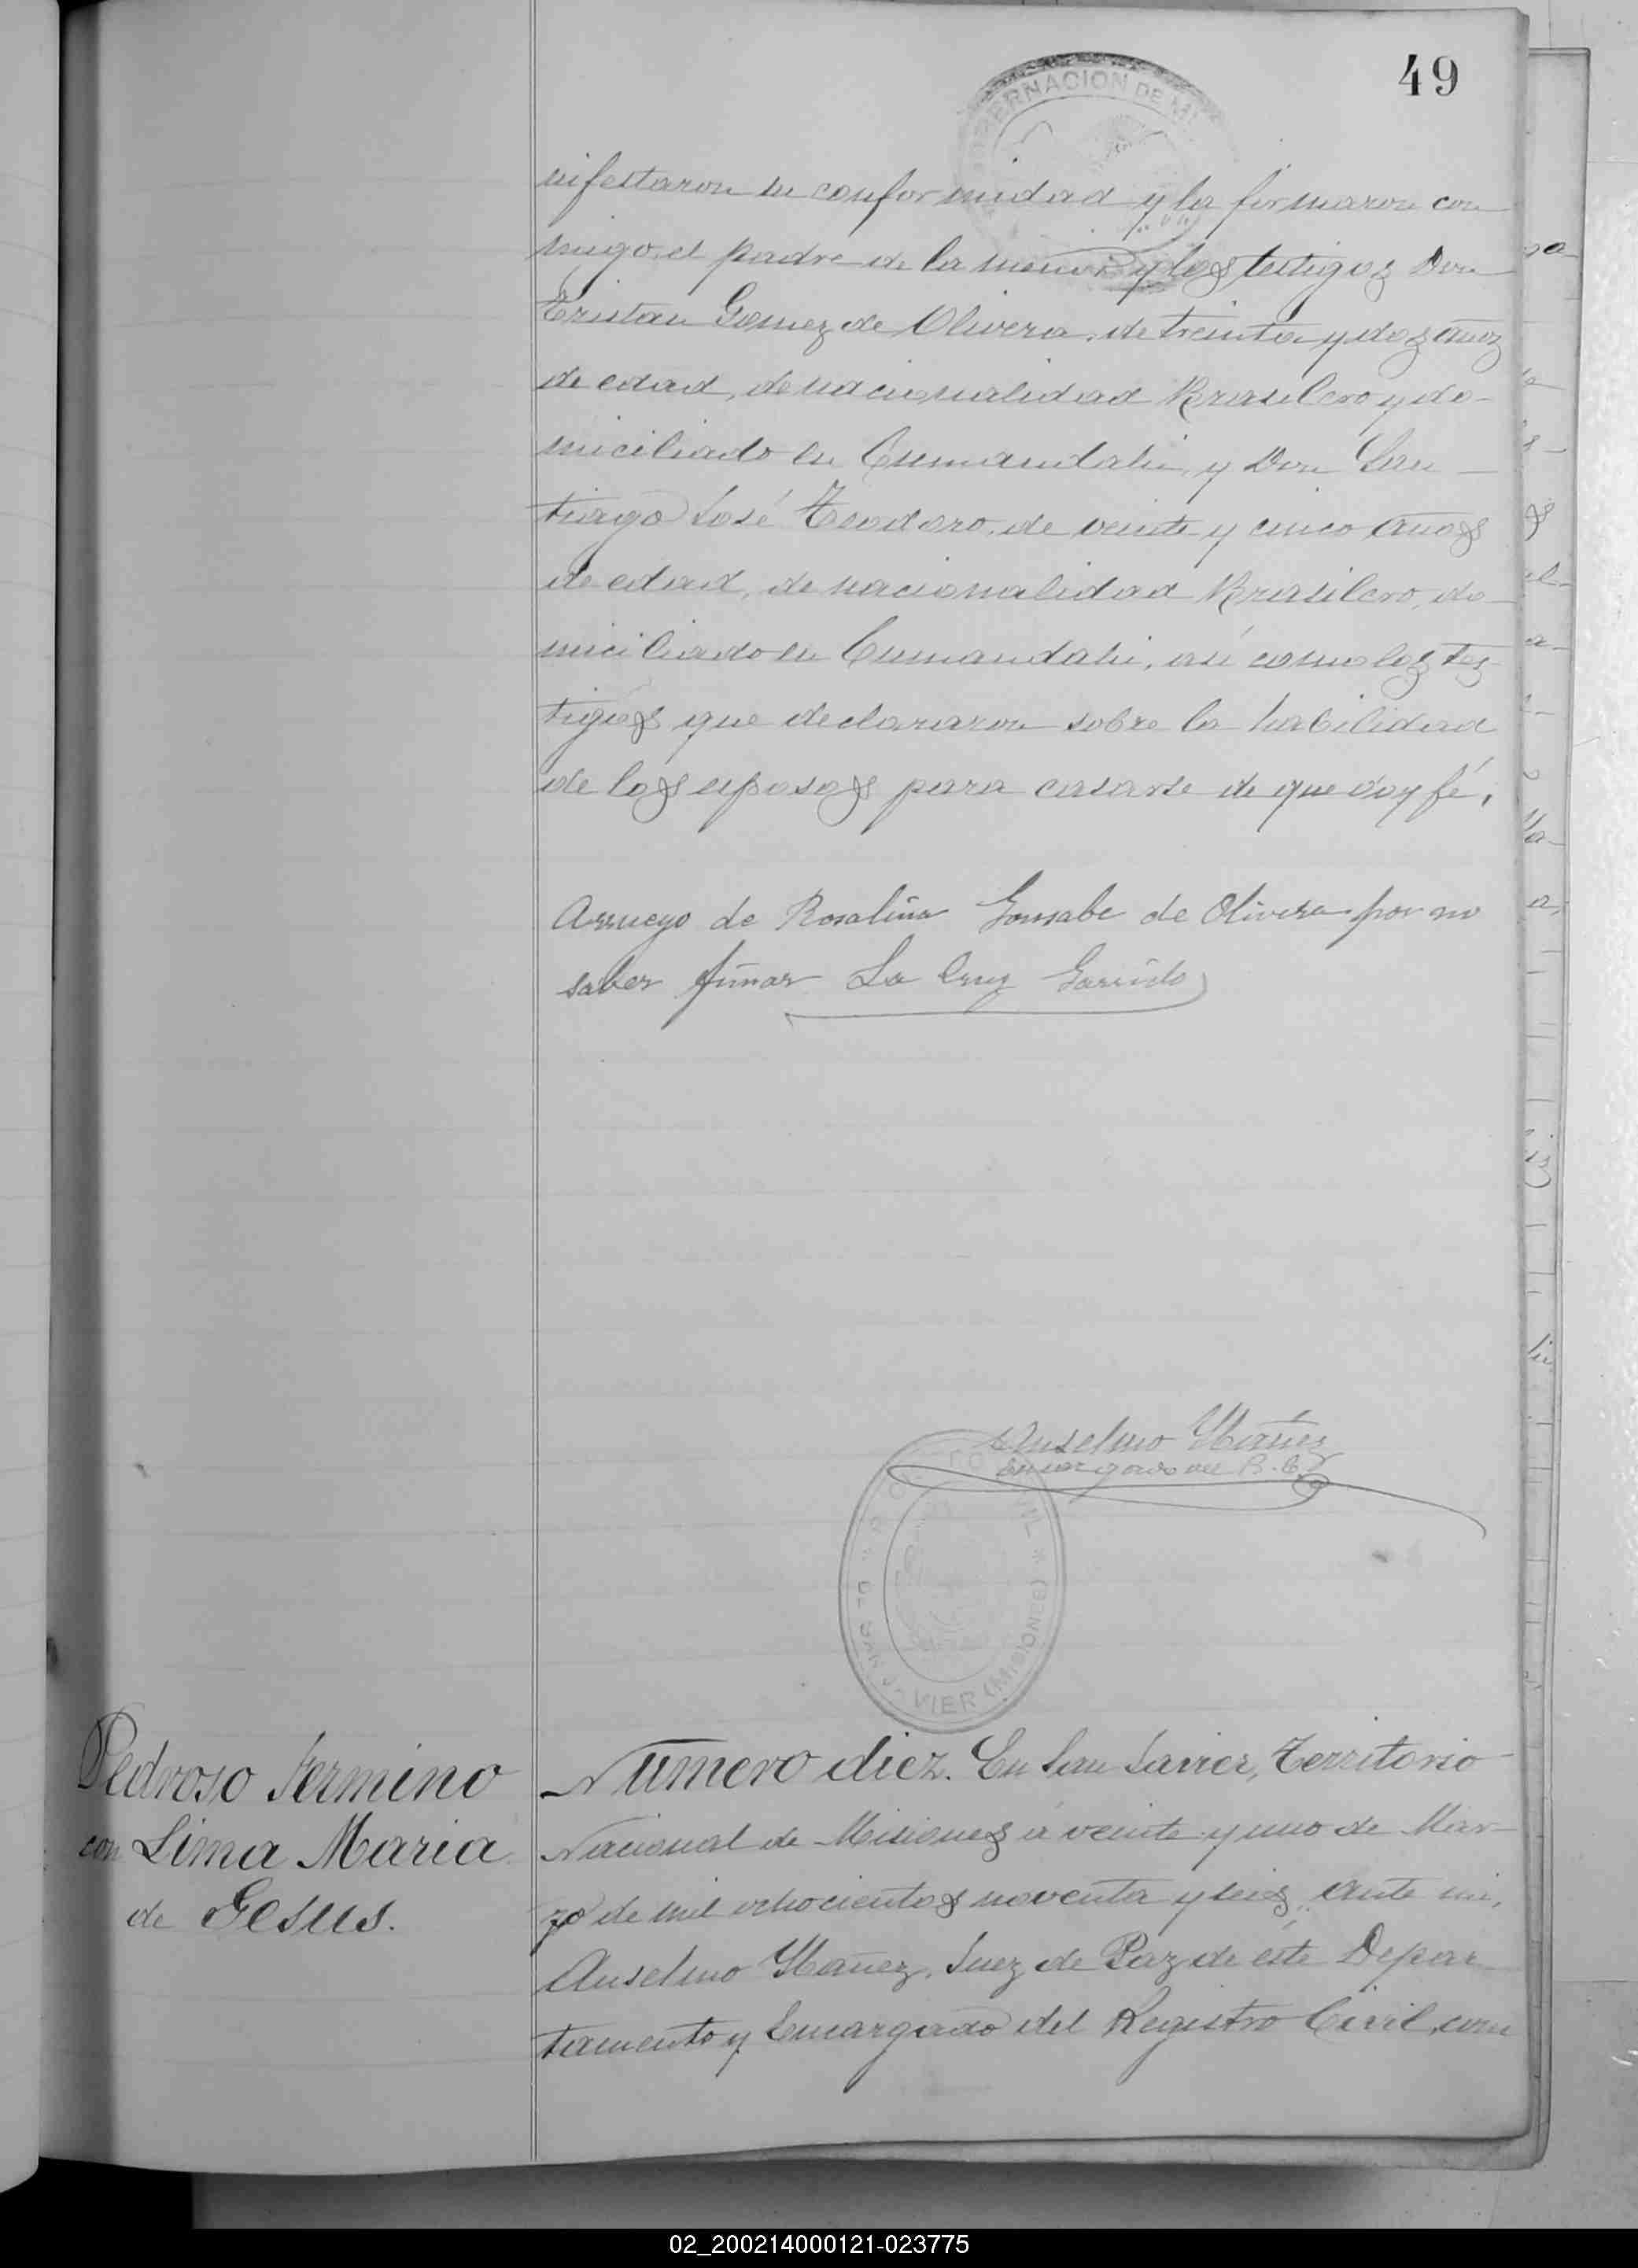 49
GOBERNACION DE MI
nifestaron su conformidad y la firmaron con
migo, el padre de la menor y los testigos Don
Tristan Gomez de Olivera, de treinta y dos años
de edad, de nacionalidad Brasilero y do-
miciliado en Cumandahi, y Don San
tiago José Teodoro, de veinte y cinco años
de edad, de nacionalidad Brasilero, do
miciliado en Cumandahi, asi como los tes
tigos que declararon sobre la habilidad
de los esposos para casarse de que doy fé.
Arruego de Rosalina Gonsalve de Olivera por no
saber firmar La Cruz Garrido
Anselmo Ybañez
Encargado del R. C.
VIER (MISIONES)
Pedroso Fermino
con Lima Maria
de Gesus.
Número diez. En San Javier, Territorio
Nacional de Misiones á veinte y uno de Mar
zo de mil ochocientos noventa y seis, ante mi,
Anselmo Ybañez, Juez de Paz de éste Depar
tamento y Encargado del Registro Civil, com
02_200214000121-023775